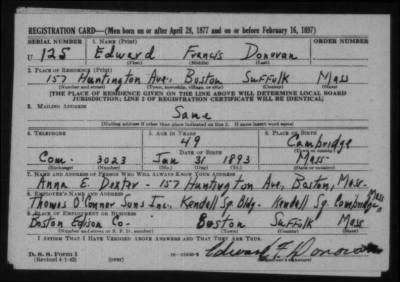 REGISTRATION CARD—(Men born on or after April 28, 1877 and on or before February 16, 1897)
SERIAL NUMBER 1. NAME (Print) ORDER NUMBER
U 125 Edward Francis Donovan
(First) (Middle) (Last)
2. PLACE OF RESIDENCE (Print)
157 Huntington Ave. Boston Suffolk Mass
(Number and street) (Town, township, village, or city) (County) (State)
[THE PLACE OF RESIDENCE GIVEN ON THE LINE ABOVE WILL DETERMINE LOCAL BOARD
JURISDICTION; LINE 2 OF REGISTRATION CERTIFICATE WILL BE IDENTICAL]
3. MAILING ADDRESS
Same
[Mailing address if other than place indicated on line 2. If same insert word same]
4. TELEPHONE 5. AGE IN YEARS 6. PLACE OF BIRTH
49 Cambridge
DATE OF BIRTH (Town or county)
Com. 3023 Jan 31 1893 Mass
(Exchange) (Number) (Mo.) (Day) (Yr.) (State or country)
7. NAME AND ADDRESS OF PERSON WHO WILL ALWAYS KNOW YOUR ADDRESS
Anna E. Dexter - 157 Huntington Ave, Boston, Mass.
8. EMPLOYER'S NAME AND ADDRESS
Thomas O'Connor Sons Inc. Kendall Sq. Bldg. - Kendall Sq. Cambridge Mass
9. PLACE OF EMPLOYMENT OR BUSINESS
Boston Edison Co. Boston Suffolk Mass
(Number and street or R. F. D. number) (Town) (County) (State)
I AFFIRM THAT I HAVE VERIFIED ABOVE ANSWERS AND THAT THEY ARE TRUE.
D. S. S. Form 1
(Revised 4-1-42) (over) Edward F. Donovan